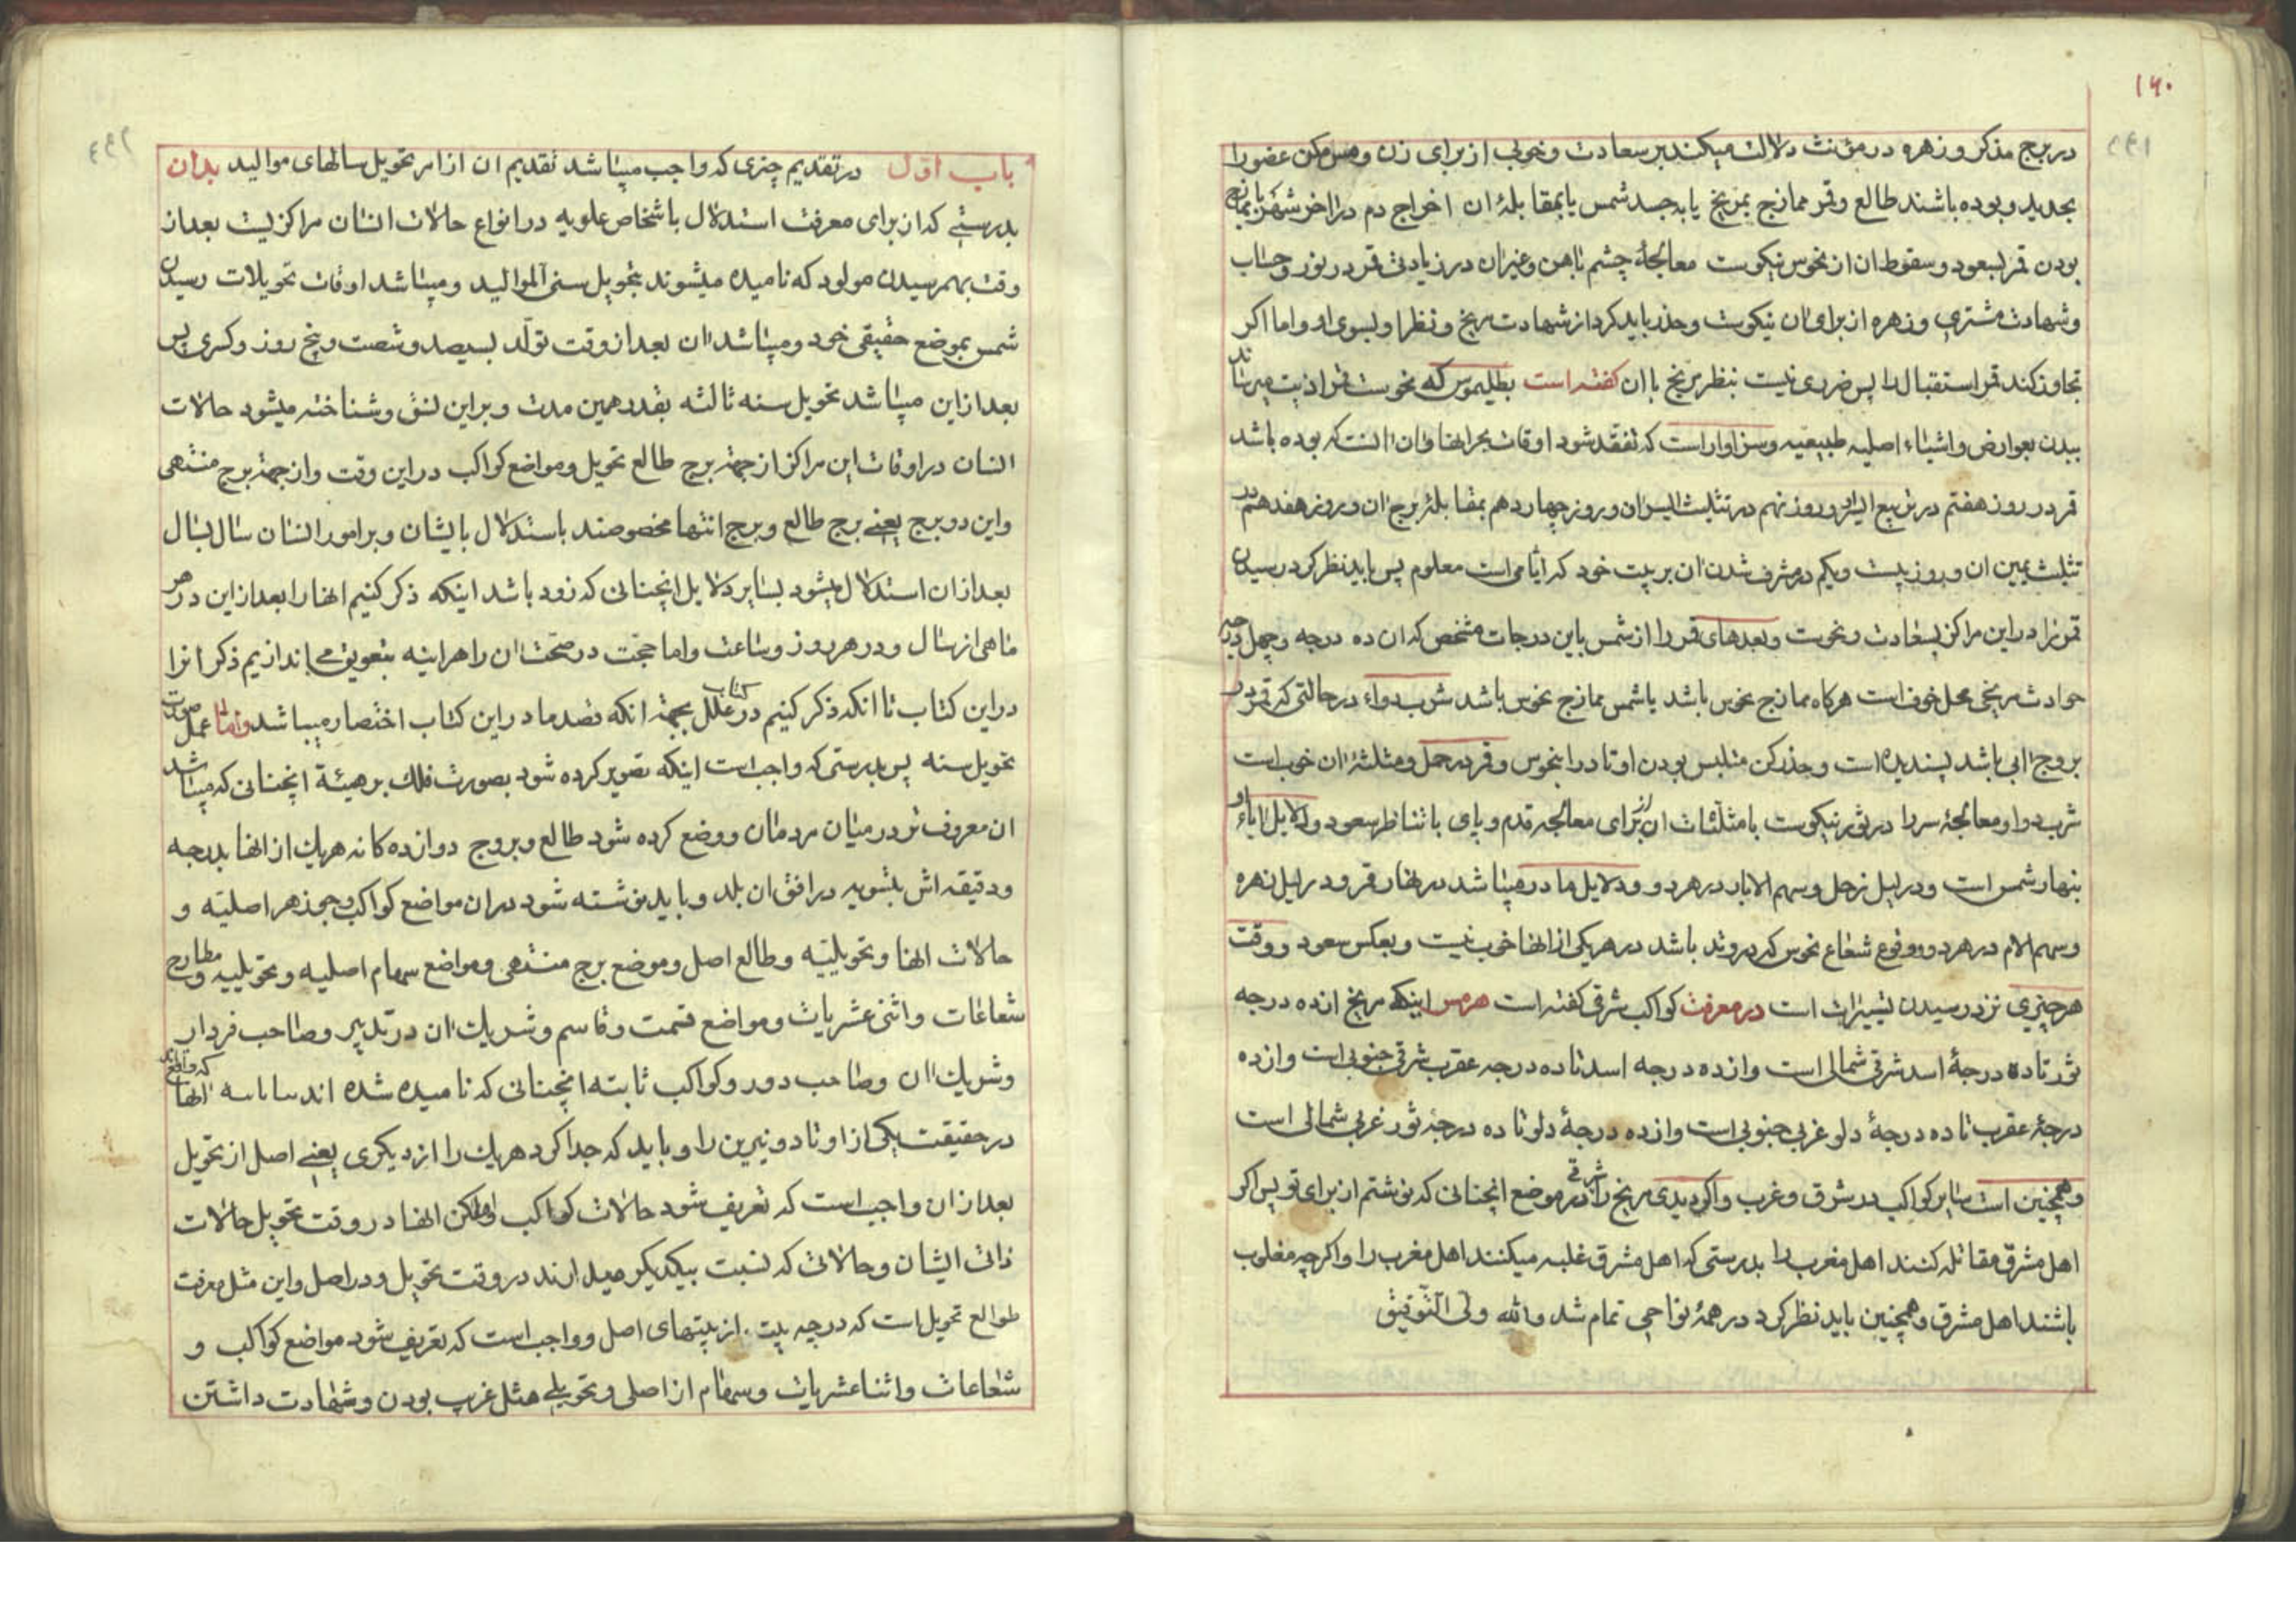 ۱۶۰
در برج مذکر و زهره در مؤنث دلالت میکند بر سعادت و خوبی از برای زن و مس مکن عضو را
بحدید و بوده باشند طالع و قمر ممازج بمریخ یا به جسد شمس یا بمقابلهٔ ان اخراج دم در اخر شهر
بودن قمر بسعود و سقوط ان از نحوس نیکوست معالجهٔ چشم باهن و غیر ان در زیادتی قمر در نور و حساب
و شهادت مشتری و زهره از برای ان نیکوست و حذر باید کرد از شهادت مریخ و نظر او بسوی او و اما اکر
تجاوز کند قمر استقبال را پس ضرری نیست بنظر مریخ باان کفته است بطلیموس که نحوست قمر اذیت میرساند
ببدن بعوارض و اشیاء اصلیه طبیعیه و سزاوار است که تفقد شود اوقات بحرانها وان انست که بوده باشد
قمر در روز هفتم در تربیع ایسر و روز نهم در تثلیث ایسر ان و روز چهاردهم بمقابلهٔ برج ان و روز هفدهم در
تثلیث یمین ان و روز بیست و یکم در مشرف شدن ان بر بیت خود که ایامی است معلوم پس باید نظر کرد در رسیدن
قمر نزد این مراکز بسعادت و نحوست و بعدهای قمر را از شمس باین درجات مشخص که ان ده درجه و چهل درجه
حوادث مریخی محل خوف است هرکاه ممازج نحوس باشد یا شمس ممازج نحوس باشد شرب دواء در حالتی که قمر در
بروج ابی باشد پسندیده است و حذر کن متلبس بودن اوتاد را بنحوس و قمر در حمل و مثلثهٔ ان خوب است
شرب دوا و معالجهٔ سر را در ثور نیکوست با مثلثات ان از برای معالجه قدم و پای با تناظر سعود و دلایل اباء و
بنهار شمس است و در لیل زحل و سهم الاباء در هر دو و دلایل مادر میباشد در نهار قمر و در لیل زهره
و سهم الام در هر دو و وقوع شعاع نحوس که در وتد باشد در هر یکی از انها خوب نیست و بعکس سعود و وقت
هر چیزی نزد رسیدن تسییرات است در معرفت کواکب شرقی کفته است هرمس اینکه مریخ از ده درجه
ثور تا ده درجهٔ اسد شرقی شمالی است و از ده درجه اسد تا ده درجه عقرب شرقی جنوبی است و از ده
درجهٔ عقرب تا ده درجهٔ دلو غربی جنوبی است و از ده درجهٔ دلو تا ده درجهٔ ثور غربی شمالی است
و همچنین است سایر کواکب در شرق و غرب و اکر دیدی مریخ را شرقی در موضع انچنانی که نوشتم از برای تو پس اکر
اهل مشرق مقاتله کنند اهل مغرب را بدرستی که اهل مشرق غلبه میکنند اهل مغرب را و اکرچه مغلوب
باشند اهل مشرق و همچنین باید نظر کرد در همهٔ نواحی تمام شد والله ولی التوفیق
باب اول در تقدیم چیزی که واجب میباشد تقدیم ان از امر تحویل سالهای موالید بدان
بدرستی که از برای معرفت استدلال باشخاص علویه در انواع حالات انسان مراکزیست بعد از
وقت بهمرسیدن مولود که نامیده میشوند بتحویل سنی الموالید و میباشد اوقات تحویلات رسیدن
شمس بموضع حقیقی خود و میباشد ان بعد از وقت تولد بسیصد و شصت و پنج روز و کسری پس
بعد از این میباشد تحویل سنه ثالثه بقدر همین مدت و بر این نسق و شناخته میشود حالات
انسان در اوقات این مراکز از جهة برج طالع تحویل و مواضع کواکب در این وقت و از جهة برج منتهی
و این دو برج یعنی برج طالع و برج انتها مخصوصند باستدلال بایشان و بر امور انسان سال بسال
بعد از ان استدلال میشود بسایر دلایل انچنانی که زود باشد اینکه ذکر کنیم انها را بعد از این در هر
ماهی از سال و در هر روز و ساعت و اما حجت در صحت ان را هراینه بتعویق می اندازیم ذکر انرا
در این کتاب تا انکه ذکر کنیم در کتاب علل بجهة انکه قصد ما در این کتاب اختصار میباشد و اما عمل صورت
تحویل سنه پس بدرستی که واجب است اینکه تصویر کرده شود بصورت فلک بر هیئة انچنانی که میباشد
ان معروف تر در میان مردمان و وضع کرده شود طالع و بروج دوازده کانه هر یک از انها بدرجه
و دقیقه اش بتسویه در افق ان بلد و باید نوشته شود در ان مواضع کواکب و جوزهر اصلیه و
حالات انها و تحویلیه و طالع اصل و موضع برج منتهی و مواضع سهام اصلیه و تحویلیه و مطارح
شعاعات و اثنی عشریات و مواضع قسمت و قاسم و شریک ان در تدبیر و صاحب فردار
و شریک ان و صاحب دور و کواکب ثابته انچنانی که نامیده شده اند انها که واقع اند
در حقیقت یکی از اوتاد و نیرین را و باید که جدا کرد هر یک را از دیکری یعنی اصل از تحویل
بعد از ان واجب است که تعریف شود حالات کواکب و اماکن انها در وقت تحویل حالات
ذاتی ایشان و حالاتی که نسبت بیکدیکر میدارند در وقت تحویل و در اصل و این مثل معرفت
طوالع تحویل است که در چه بیت از بیتهای اصل و واجب است که تعریف شود مواضع کواکب و
شعاعات و اثنا عشریات و سهام از اصلی و تحویلی مثل غریب بودن و شهادت داشتن